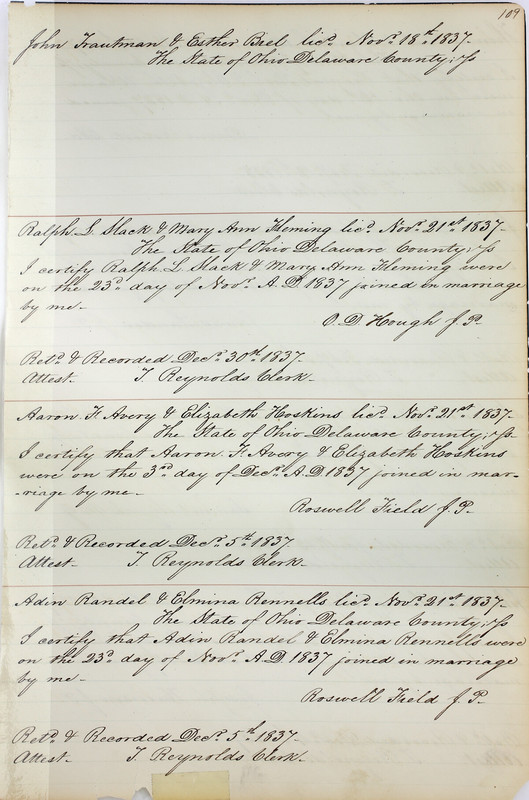 109
John Trautman & Esther Biel licd. Novr. 18th. 1837-
The State of Ohio Delaware County; ss
Ralph. L. Slack & Mary Ann Fleming licd. Novr. 21st 1837-
The State of Ohio Delaware County; ss
I certify Ralph. L Slack & Mary Ann Fleming were
on the 23d. day of Novr. A. D 1837 joined in marriage
by me-
O. D. Hough J. P-
Retd. & Recorded Decr. 30th. 1837.
Attest- T. Reynolds Clerk-
Aaron. F. Avery & Elizabeth Hoskins licd. Novr. 21st. 1837-
The State of Ohio Delaware County; ss-
I certify that Aaron. F. Avery & Elizabeth Hoskins
were on the 3rd. day of Decr. A. D 1837 joined in mar-
-riage by me-
Roswell Field J. P-
Retd. & Recorded Decr. 5th. 1837
Attest- T. Reynolds Clerk-
Adin Randel & Elmina Rennells licd. Novr. 21st. 1837-
The State of Ohio Delaware County; ss
I certify that Adin Randel & Elmina Rennells were
on the 23d. day of Novr. A. D 1837 joined in marriage
by me-
Roswell Field J. P-
Retd. & Recorded Decr. 5th. 1837
Attest- T. Reynolds Clerk-